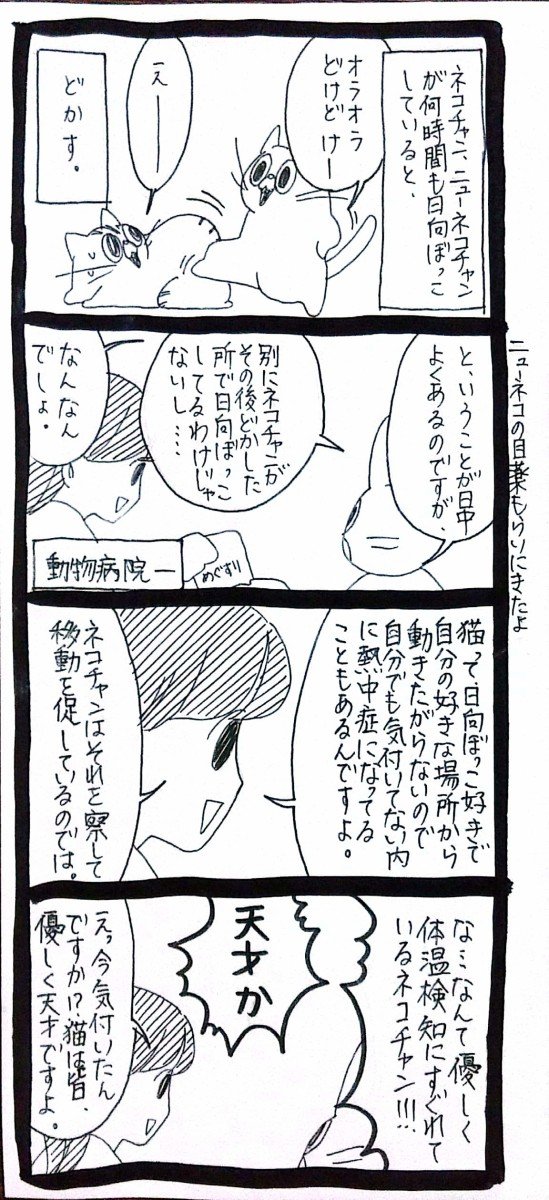 ネコチャン、ニューネコチャン
が何時間も日向ぼっこ
していると、
オラオラ
どけどけー
えー
どかす。
ニューネコの目薬もらいにきたよ
ということが日中
よくあるのですが、
別にネコチャンが
その後どかした
所で日向ぼっこ
してるわけじゃ
ないし…
なんなん
でしょ。
動物病院
めぐすり
猫って、日向ぼっこ好きで
自分の好きな場所から
動きたがらないので
自分でも気付いてない内
に熱中症になってる
こともあるんですよ。
ネコチャンはそれを察して
移動を促しているのでは。
な…なんて優しく
体温検知にすぐれて
いるネコチャン!!!
天才か
えっ今気付いたん
ですか!?猫は皆、
優しく天才ですよ。